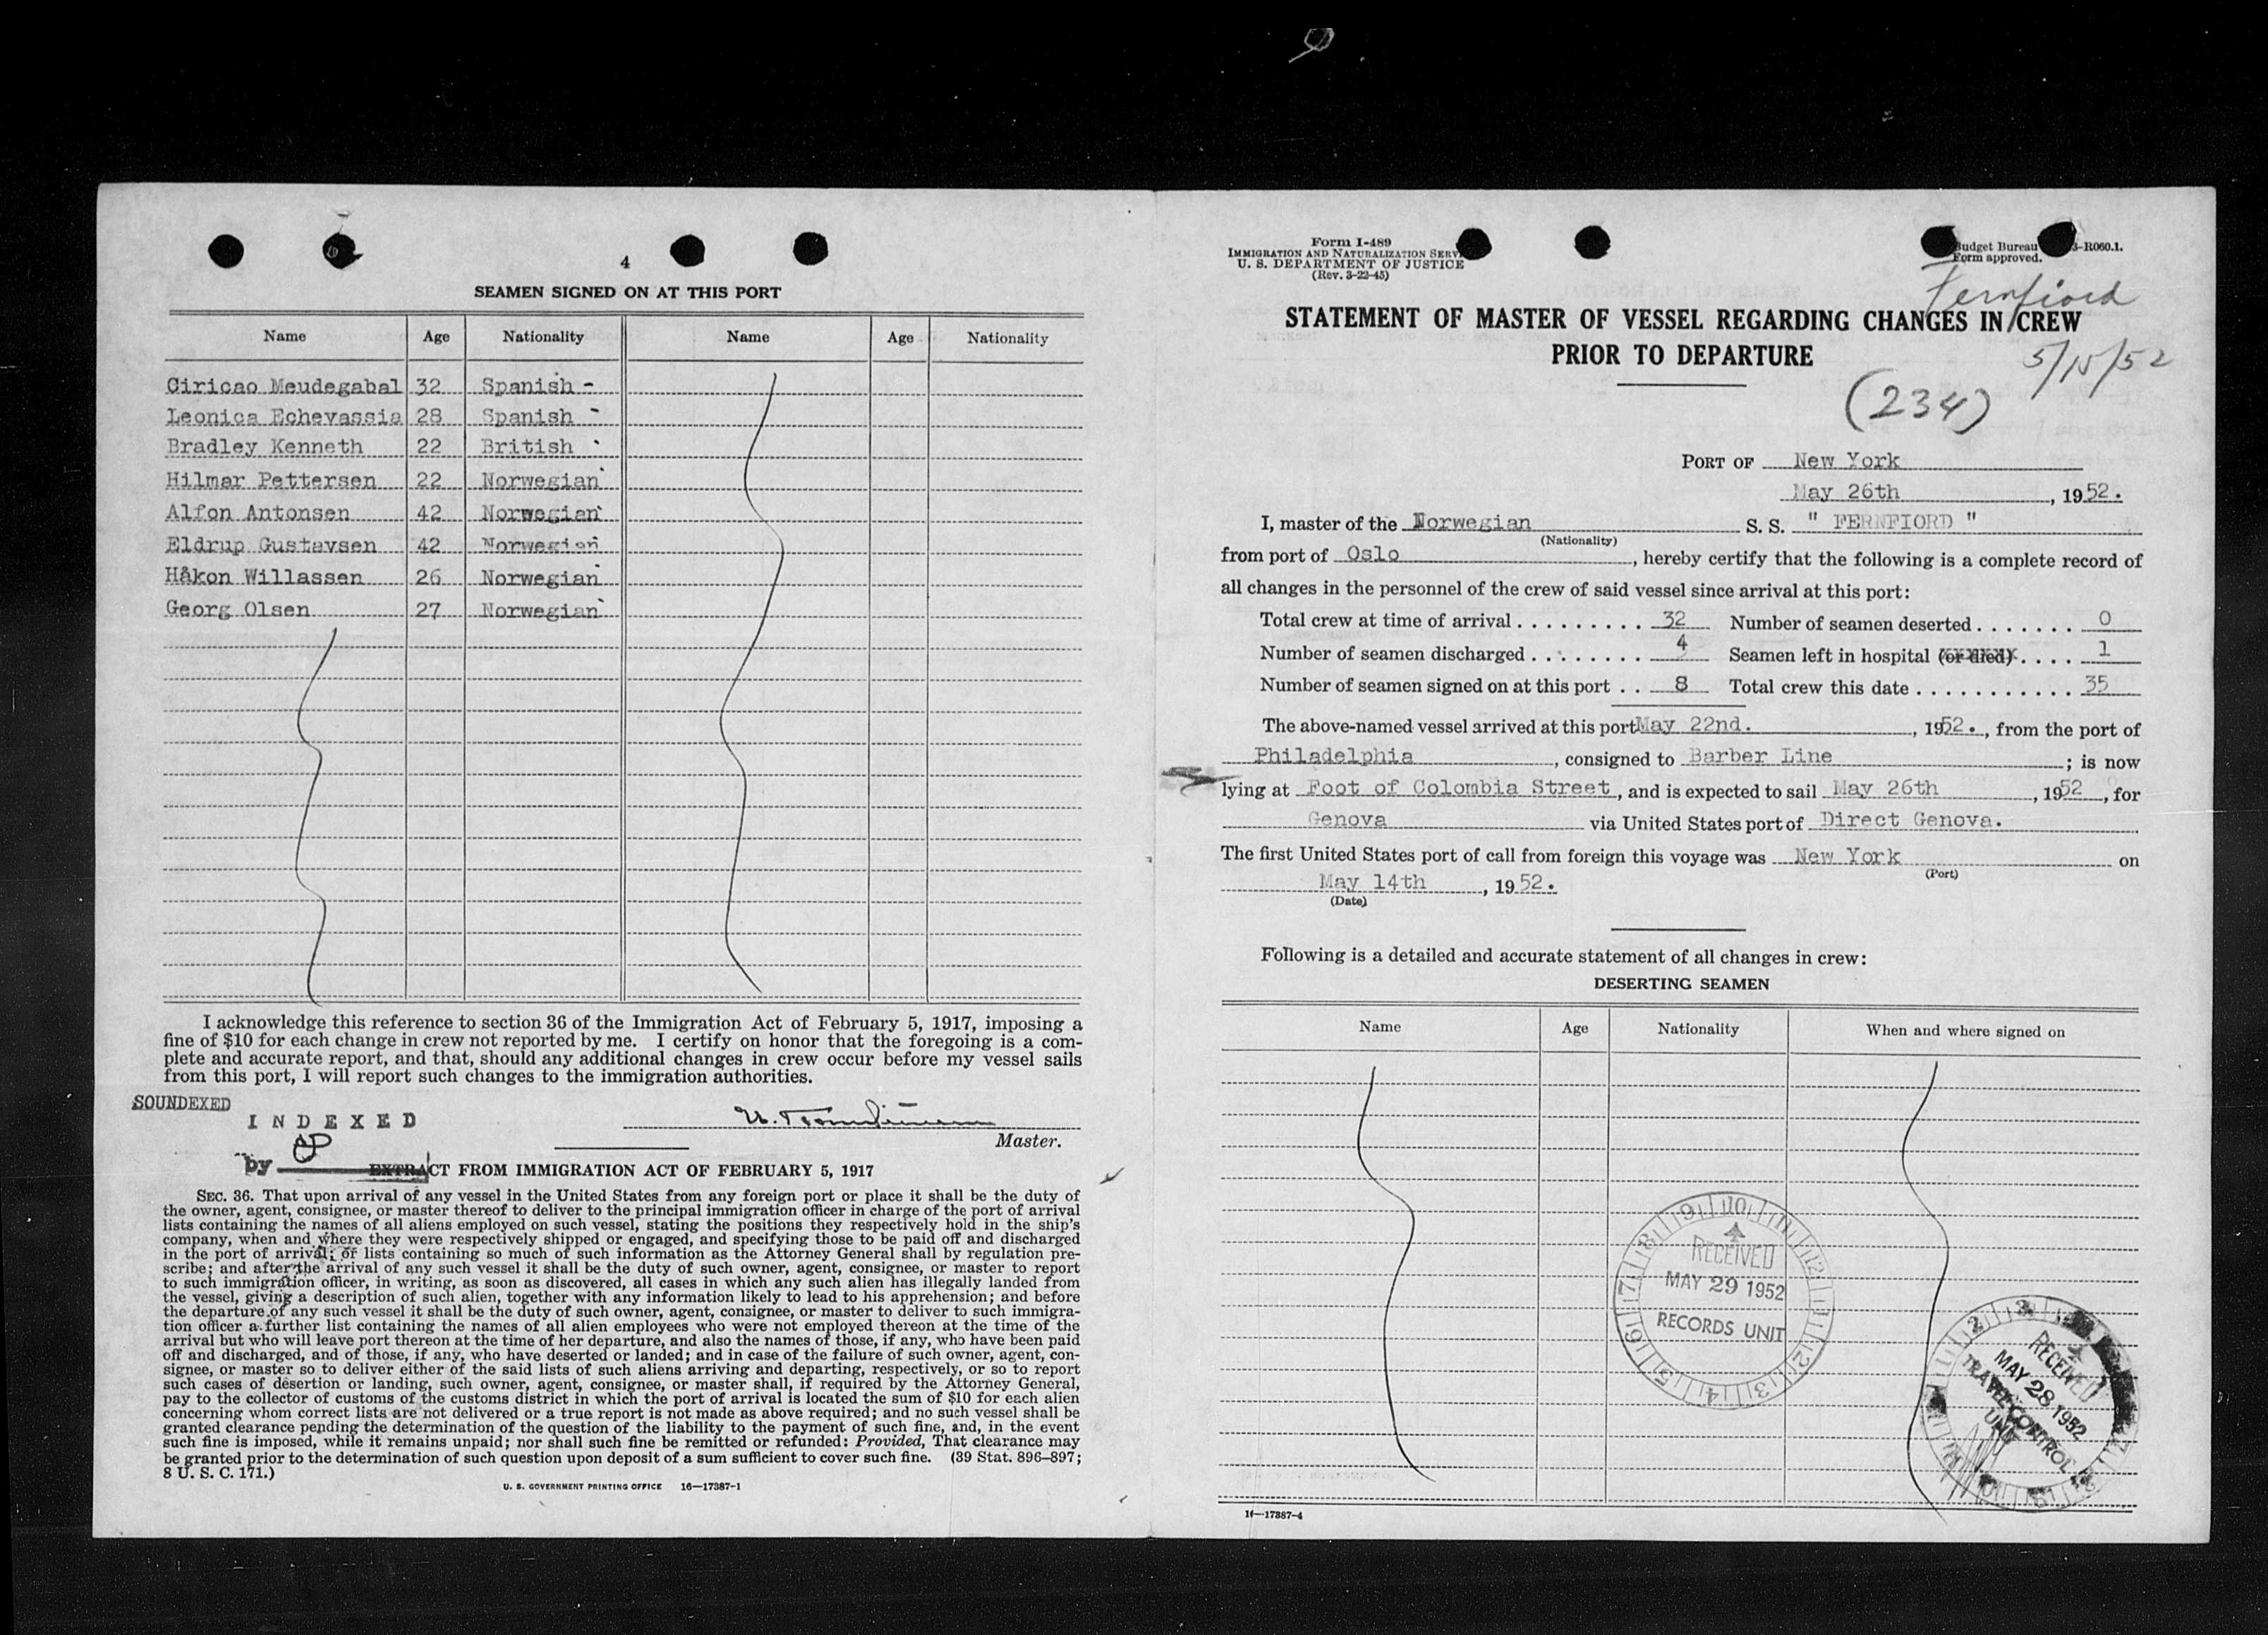 4
SEAMEN SIGNED ON AT THIS PORT
Name Age Nationality Name Age Nationality
Ciricao Meudegabal 32 Spanish -
Leonica Echevassia 28 Spanish -
Bradley Kenneth 22 British
Hilmar Pettersen 22 Norwegian
Alfon Antonsen 42 Norwegian
Eldrup Gustavsen 42 Norwegian
Håkon Willassen 26 Norwegian
Georg Olsen 27 Norwegian
I acknowledge this reference to section 36 of the Immigration Act of February 5, 1917, imposing a
fine of $10 for each change in crew not reported by me. I certify on honor that the foregoing is a com-
plete and accurate report, and that, should any additional changes in crew occur before my vessel sails
from this port, I will report such changes to the immigration authorities.
SOUNDEXED
INDEXED
Master.
by
EXTRACT FROM IMMIGRATION ACT OF FEBRUARY 5, 1917
SEC. 36. That upon arrival of any vessel in the United States from any foreign port or place it shall be the duty of
the owner, agent, consignee, or master thereof to deliver to the principal immigration officer in charge of the port of arrival
lists containing the names of all aliens employed on such vessel, stating the positions they respectively hold in the ship's
company, when and where they were respectively shipped or engaged, and specifying those to be paid off and discharged
in the port of arrival; or lists containing so much of such information as the Attorney General shall by regulation pre-
scribe; and after the arrival of any such vessel it shall be the duty of such owner, agent, consignee, or master to report
to such immigration officer, in writing, as soon as discovered, all cases in which any such alien has illegally landed from
the vessel, giving a description of such alien, together with any information likely to lead to his apprehension; and before
the departure of any such vessel it shall be the duty of such owner, agent, consignee, or master to deliver to such immigra-
tion officer a further list containing the names of all alien employees who were not employed thereon at the time of the
arrival but who will leave port thereon at the time of her departure, and also the names of those, if any, who have been paid
off and discharged, and of those, if any, who have deserted or landed; and in case of the failure of such owner, agent, con-
signee, or master so to deliver either of the said lists of such aliens arriving and departing, respectively, or so to report
such cases of desertion or landing, such owner, agent, consignee, or master shall, if required by the Attorney General,
pay to the collector of customs of the customs district in which the port of arrival is located the sum of $10 for each alien
concerning whom correct lists are not delivered or a true report is not made as above required; and no such vessel shall be
granted clearance pending the determination of the question of the liability to the payment of such fine, and, in the event
such fine is imposed, while it remains unpaid; nor shall such fine be remitted or refunded: Provided, That clearance may
be granted prior to the determination of such question upon deposit of a sum sufficient to cover such fine. (39 Stat. 896–897;
8 U. S. C. 171.)
U. S. GOVERNMENT PRINTING OFFICE 16—17387-1
Form I-489
IMMIGRATION AND NATURALIZATION SERV
U. S. DEPARTMENT OF JUSTICE
(Rev. 3-22-45)
Budget Bureau 3-R060.1.
Form approved.
Fernfiord
STATEMENT OF MASTER OF VESSEL REGARDING CHANGES IN CREW
PRIOR TO DEPARTURE
5/15/52
(234)
PORT OF New York
May 26th, 1952.
I, master of the Norwegian S. S. " FERNFIORD "
(Nationality)
from port of Oslo, hereby certify that the following is a complete record of
all changes in the personnel of the crew of said vessel since arrival at this port:
Total crew at time of arrival . . . . . . . . . 32 Number of seamen deserted . . . . . . . 0
Number of seamen discharged . . . . . . . . 4 Seamen left in hospital (or died) . . . . 1
Number of seamen signed on at this port . . 8 Total crew this date . . . . . . . . . . . 35
The above-named vessel arrived at this port May 22nd., 1952., from the port of
Philadelphia, consigned to Barber Line; is now
lying at Foot of Colombia Street, and is expected to sail May 26th, 1952, for
Genova via United States port of Direct Genova.
The first United States port of call from foreign this voyage was New York on
(Port)
May 14th, 1952.
(Date)
Following is a detailed and accurate statement of all changes in crew:
DESERTING SEAMEN
Name Age Nationality When and where signed on
RECEIVED
MAY 29 1952
RECORDS UNIT
RECEIVED
MAY 28 1952
TRAVEL CONTROL
UNIT
16—17387-4